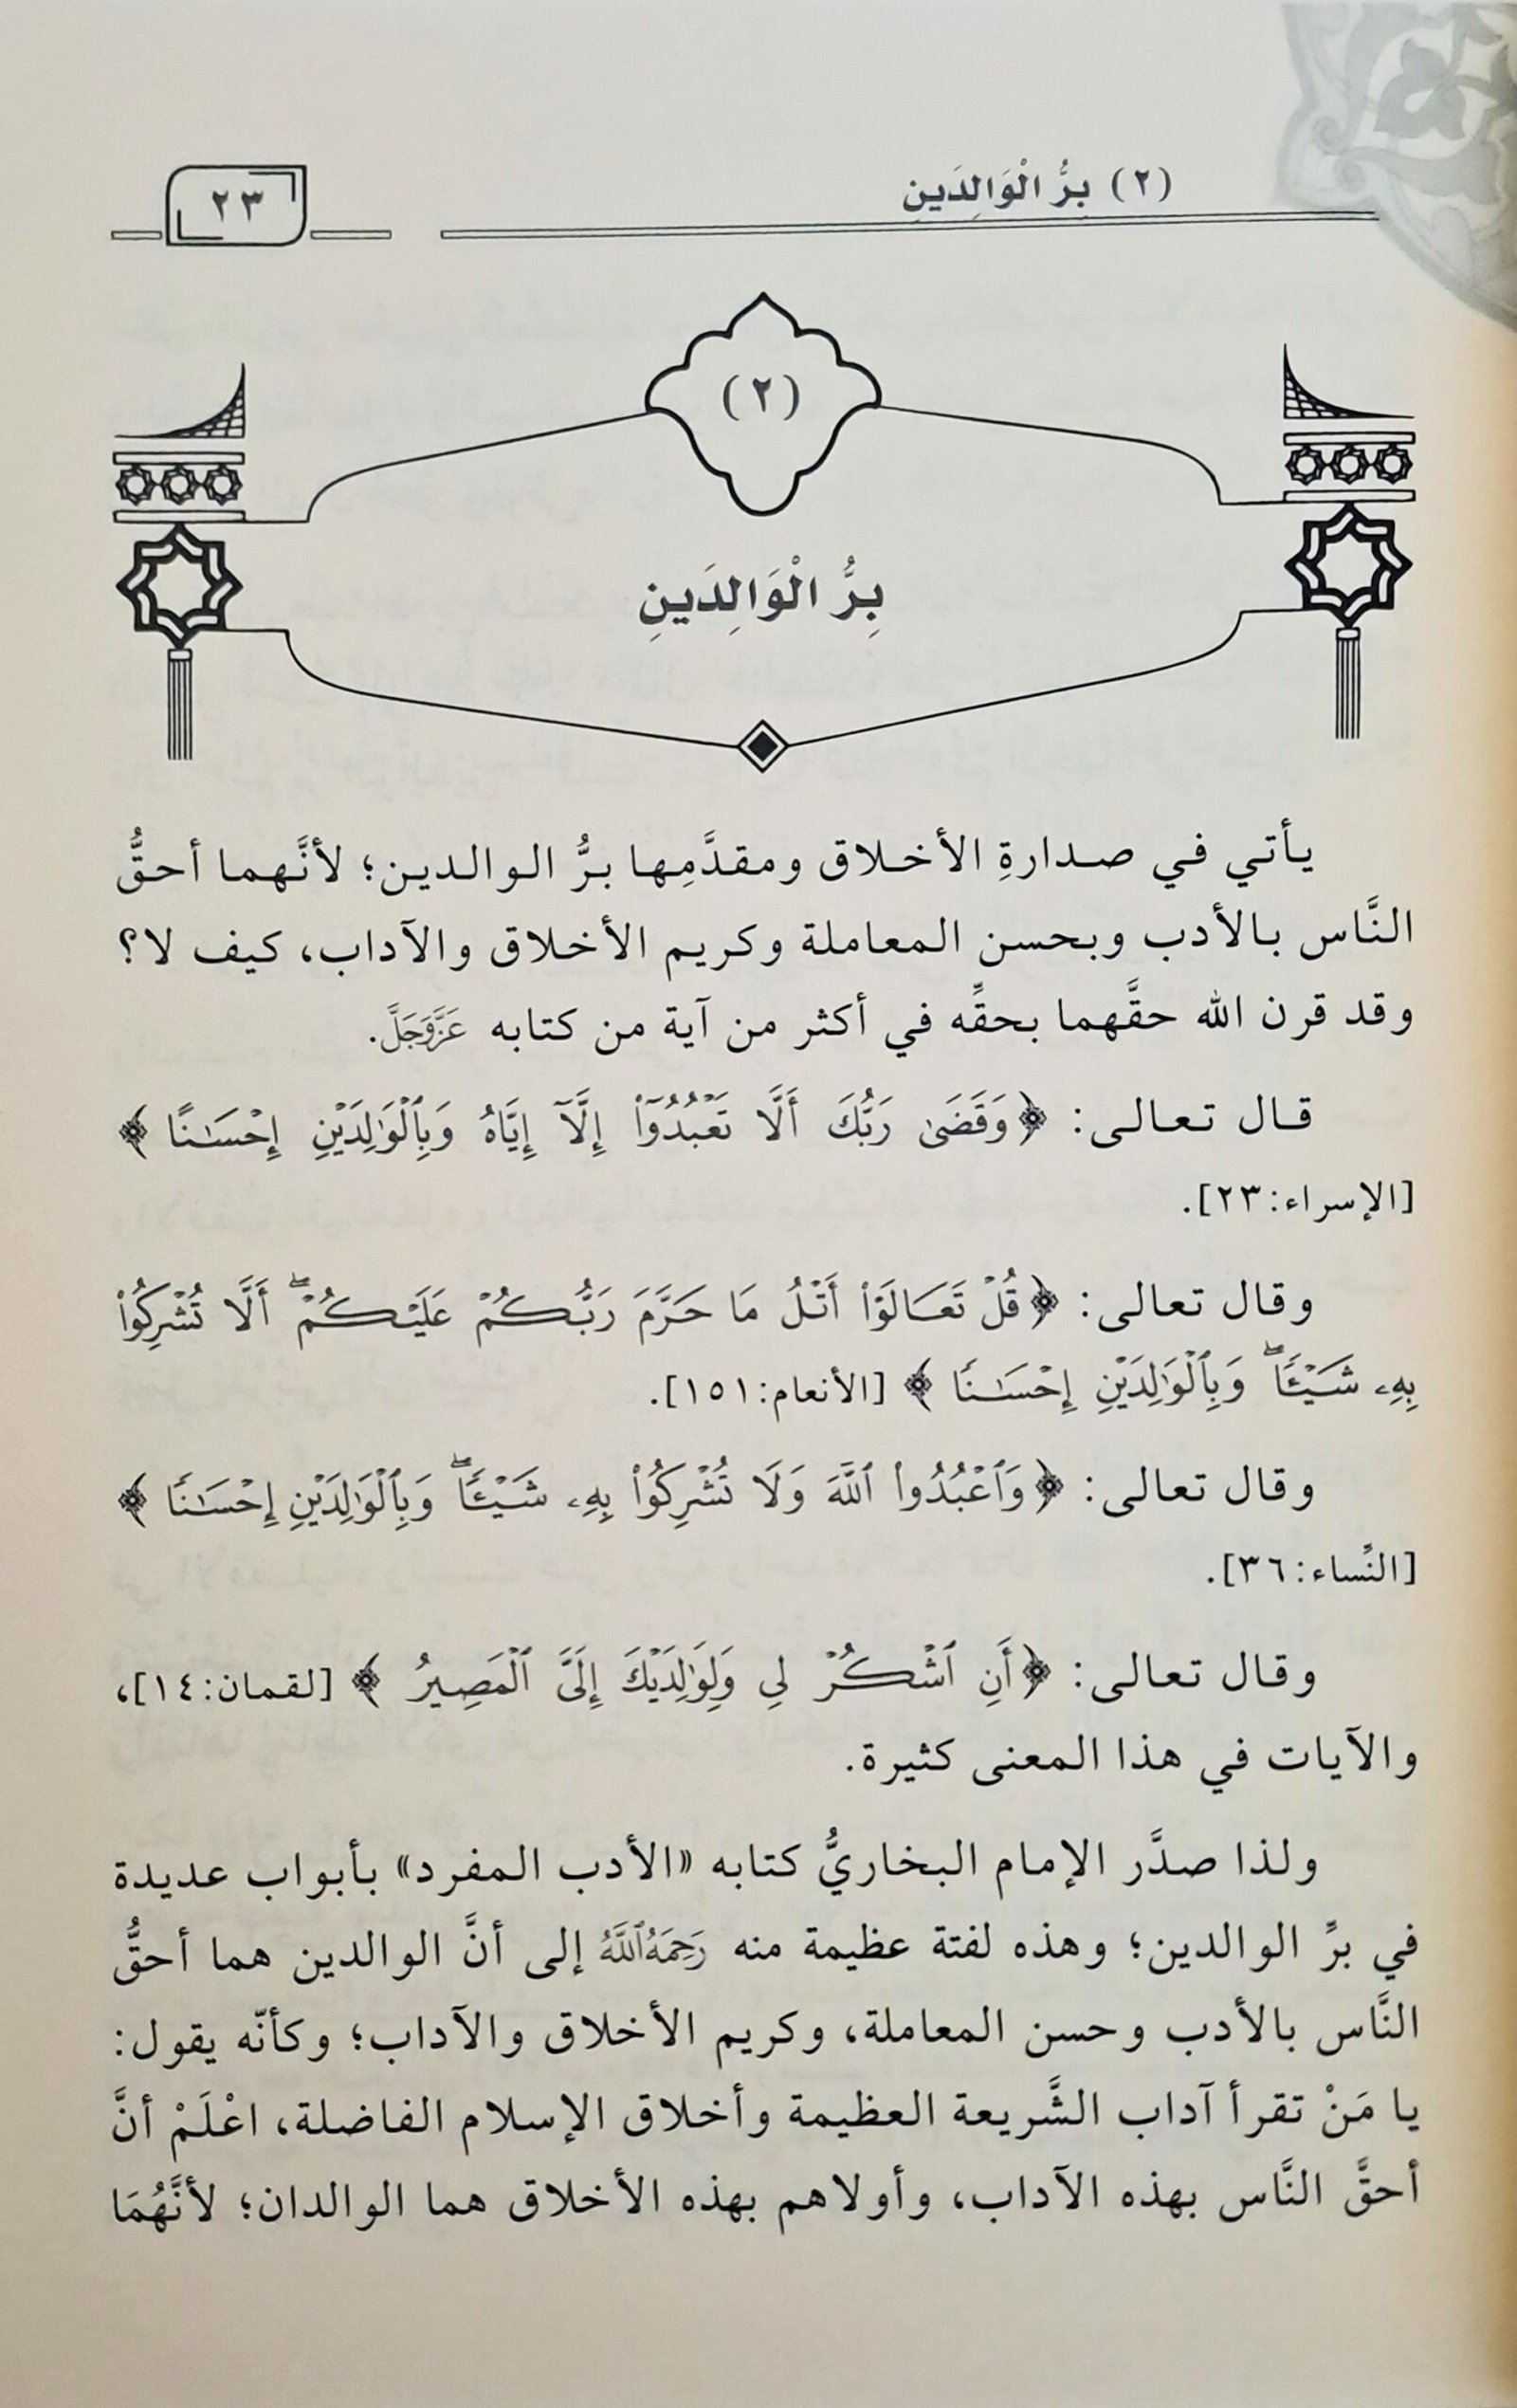 (٢) بِرُّ الْوَالِدَينِ
٢٣
(٢)
بِرُّ الْوَالِدَينِ
يأتي في صدارةِ الأخلاق ومقدَّمِها برُّ الوالدين؛ لأنَّهما أحقُّ
النَّاس بالأدب وبحسن المعاملة وكريم الأخلاق والآداب، كيف لا؟
وقد قرن الله حقَّهما بحقِّه في أكثر من آية من كتابه عَزَّوَجَلَّ.
قال تعالى: ﴿وَقَضَىٰ رَبُّكَ أَلَّا تَعْبُدُوٓاْ إِلَّآ إِيَّاهُ وَبِٱلْوَٰلِدَيْنِ إِحْسَٰنًا ﴾
[الإسراء:٢٣].
وقال تعالى: ﴿قُلْ تَعَالَوْاْ أَتْلُ مَا حَرَّمَ رَبُّكُمْ عَلَيْكُمْۖ أَلَّا تُشْرِكُواْ
بِهِۦ شَيْـًٔاۖ وَبِٱلْوَٰلِدَيْنِ إِحْسَٰنًا ﴾ [الأنعام:١٥١].
وقال تعالى: ﴿وَٱعْبُدُواْ ٱللَّهَ وَلَا تُشْرِكُواْ بِهِۦ شَيْـًٔاۖ وَبِٱلْوَٰلِدَيْنِ إِحْسَٰنًا ﴾
[النِّساء:٣٦].
وقال تعالى: ﴿أَنِ ٱشْكُرْ لِي وَلِوَٰلِدَيْكَ إِلَيَّ ٱلْمَصِيرُ ﴾ [لقمان:١٤]،
والآيات في هذا المعنى كثيرة.
ولذا صدَّر الإمام البخاريُّ كتابه «الأدب المفرد» بأبواب عديدة
في برِّ الوالدين؛ وهذه لفتة عظيمة منه رَحِمَهُٱللَّهُ إلى أنَّ الوالدين هما أحقُّ
النَّاس بالأدب وحسن المعاملة، وكريم الأخلاق والآداب؛ وكأنّه يقول:
يا مَنْ تقرأ آداب الشَّريعة العظيمة وأخلاق الإسلام الفاضلة، اعْلَمْ أنَّ
أحقَّ النَّاس بهذه الآداب، وأولاهم بهذه الأخلاق هما الوالدان؛ لأنَّهُمَا